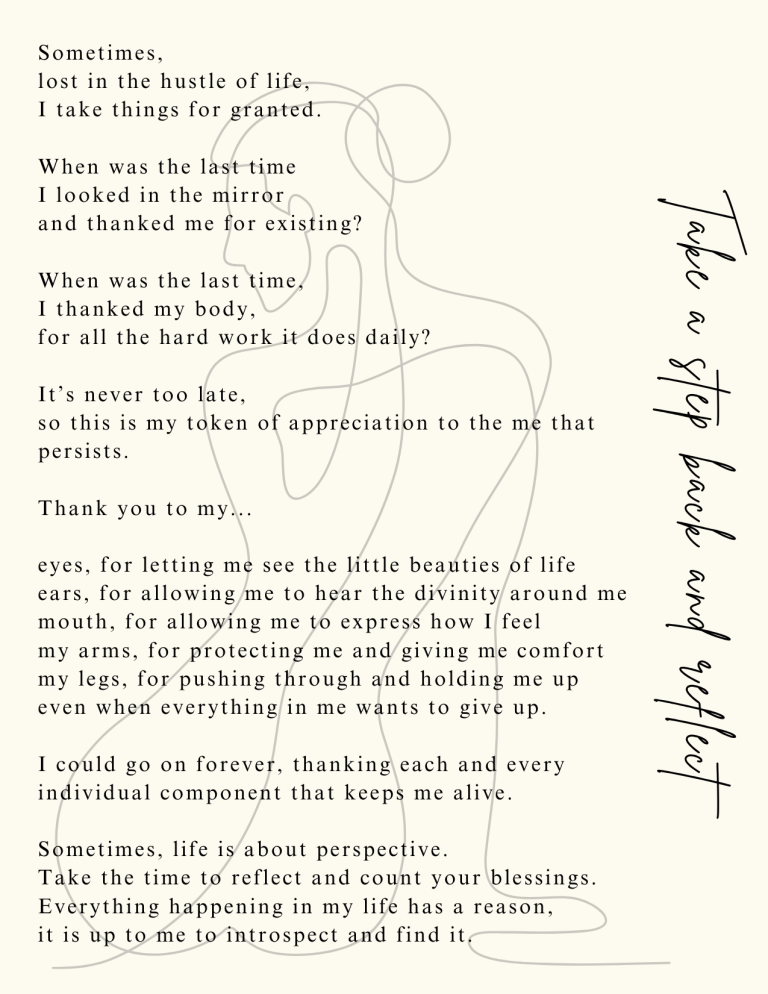 Sometimes,
lost in the hustle of life,
I take things for granted.
When was the last time
I looked in the mirror
and thanked me for existing?
When was the last time,
I thanked my body,
for all the hard work it does daily?
It’s never too late,
so this is my token of appreciation to the me that
persists.
Thank you to my...
eyes, for letting me see the little beauties of life
ears, for allowing me to hear the divinity around me
mouth, for allowing me to express how I feel
my arms, for protecting me and giving me comfort
my legs, for pushing through and holding me up
even when everything in me wants to give up.
I could go on forever, thanking each and every
individual component that keeps me alive.
Sometimes, life is about perspective.
Take the time to reflect and count your blessings.
Everything happening in my life has a reason,
it is up to me to introspect and find it.
Take a step back and reflect